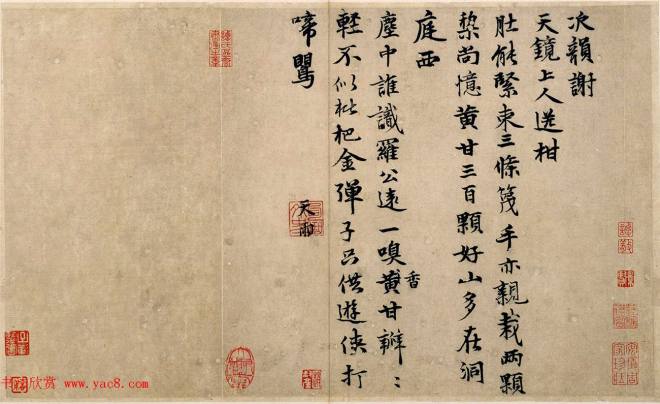 次韻謝
天鏡上人送柑
肚能緊束三條篾手亦親栽两顆
棃尚憶黄甘三百顆好山多在洞
庭西
塵中誰識羅公遠一嗅黄甘辦〻
香
輕不似枇杷金弾子只供遊侠打
啼鸎
天雨
书 欣赏 www.yac8.com